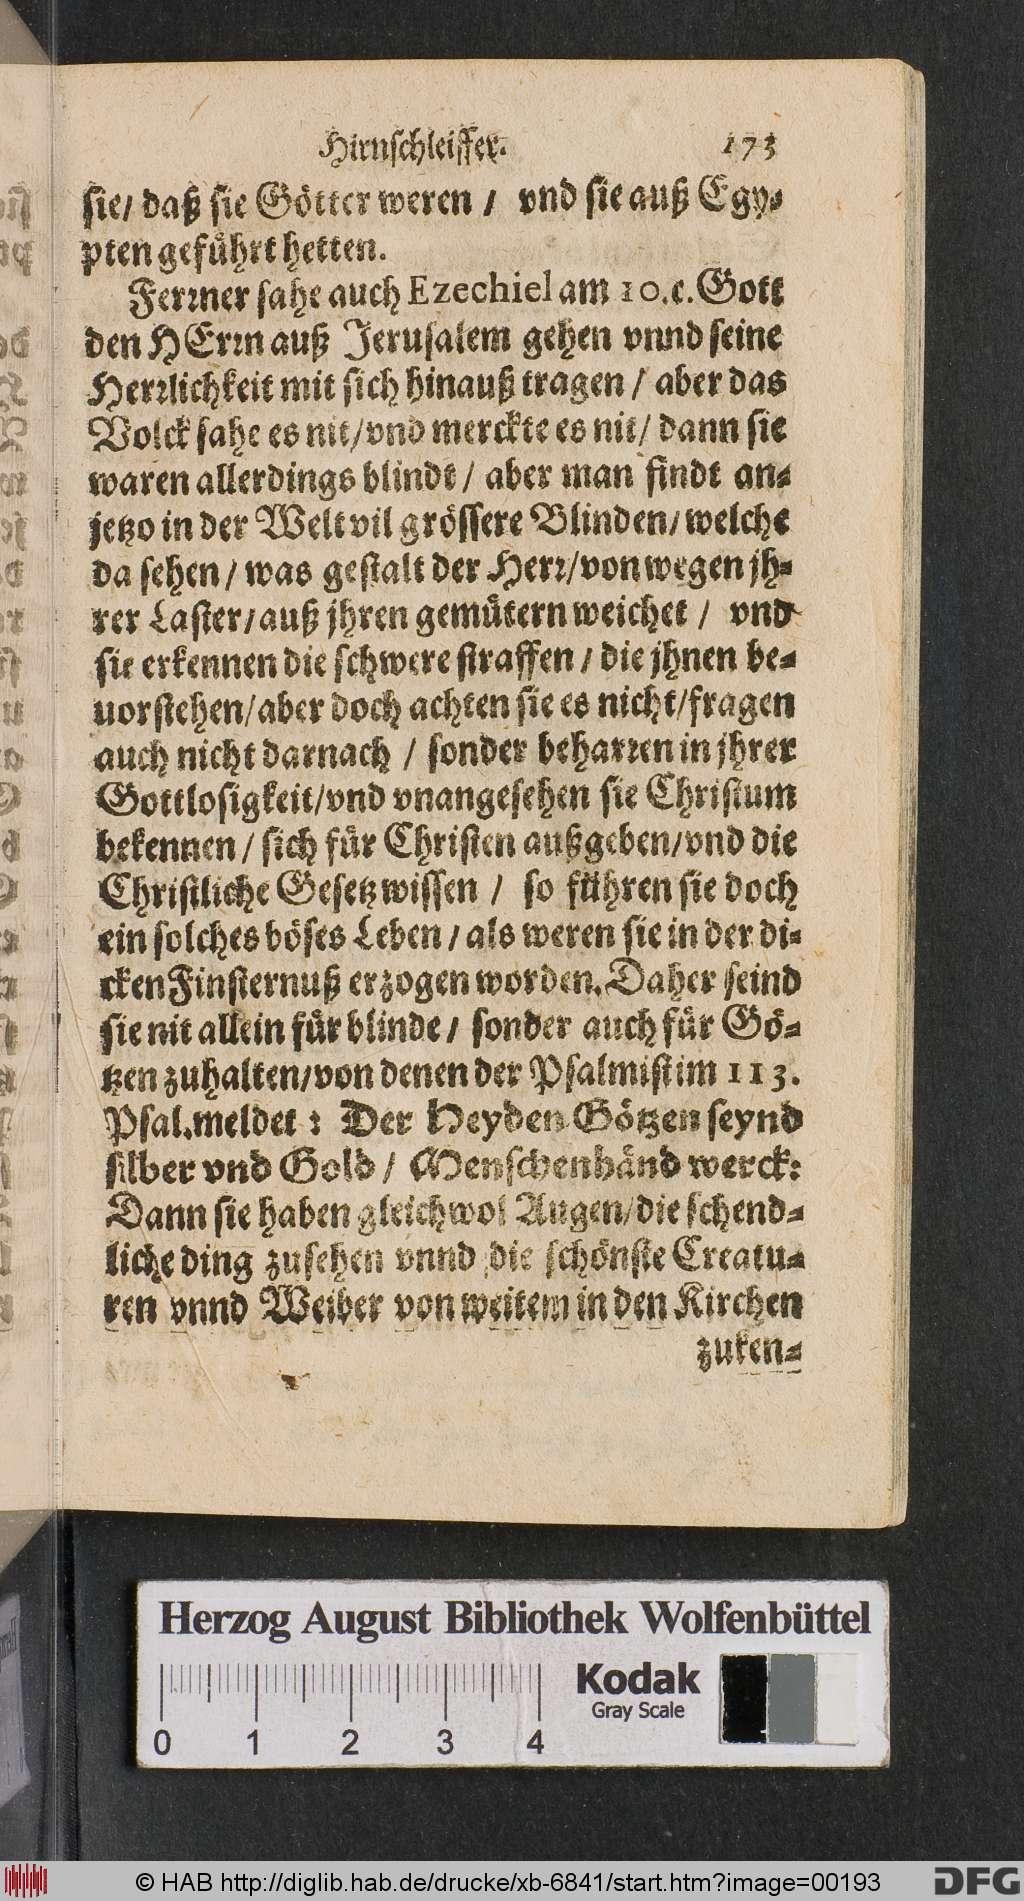 Hirnschleiffer. 173
sie/ daß sie Götter weren / vnd sie auß Egy-
pten geführt hetten.
Ferꝛner sahe auch Ezechiel am 10. c. Gott
den HErꝛn auß Jerusalem gehen vnnd seine
Herꝛlichkeit mit sich hinauß tragen / aber das
Volck sahe es nit/vnd merckte es nit/ dann sie
waren allerdings blindt / aber man findt an-
jetzo in der Welt vil grössere Blinden/welche
da sehen / was gestalt der Herꝛ/von wegen jh-
rer Laster/auß jhren gemütern weichet / vnd
sie erkennen die schwere straffen / die jhnen be-
uorstehen/aber doch achten sie es nicht/fragen
auch nicht darnach / sonder beharꝛen in jhrer
Gottlosigkeit/vnd vnangesehen sie Christum
bekennen / sich für Christen außgeben/vnd die
Christliche Gesetz wissen / so führen sie doch
ein solches böses Leben / als weren sie in der di-
cken Finsternuß erzogen worden. Daher seind
sie nit allein für blinde / sonder auch für Gö-
tzen zuhalten/von denen der Psalmist im 113.
Psal. meldet : Der Heyden Götzen seynd
silber vnd Gold / Menschenhänd werck:
Dann sie haben gleichwol Augen/die schend-
liche ding zusehen vnnd die schönste Creatu-
ren vnnd Weiber von weitem in den Kirchen
zuken-
Herzog August Bibliothek Wolfenbüttel
Kodak
Gray Scale
0 1 2 3 4
© HAB http://diglib.hab.de/drucke/xb-6841/start.htm?image=00193
DFG